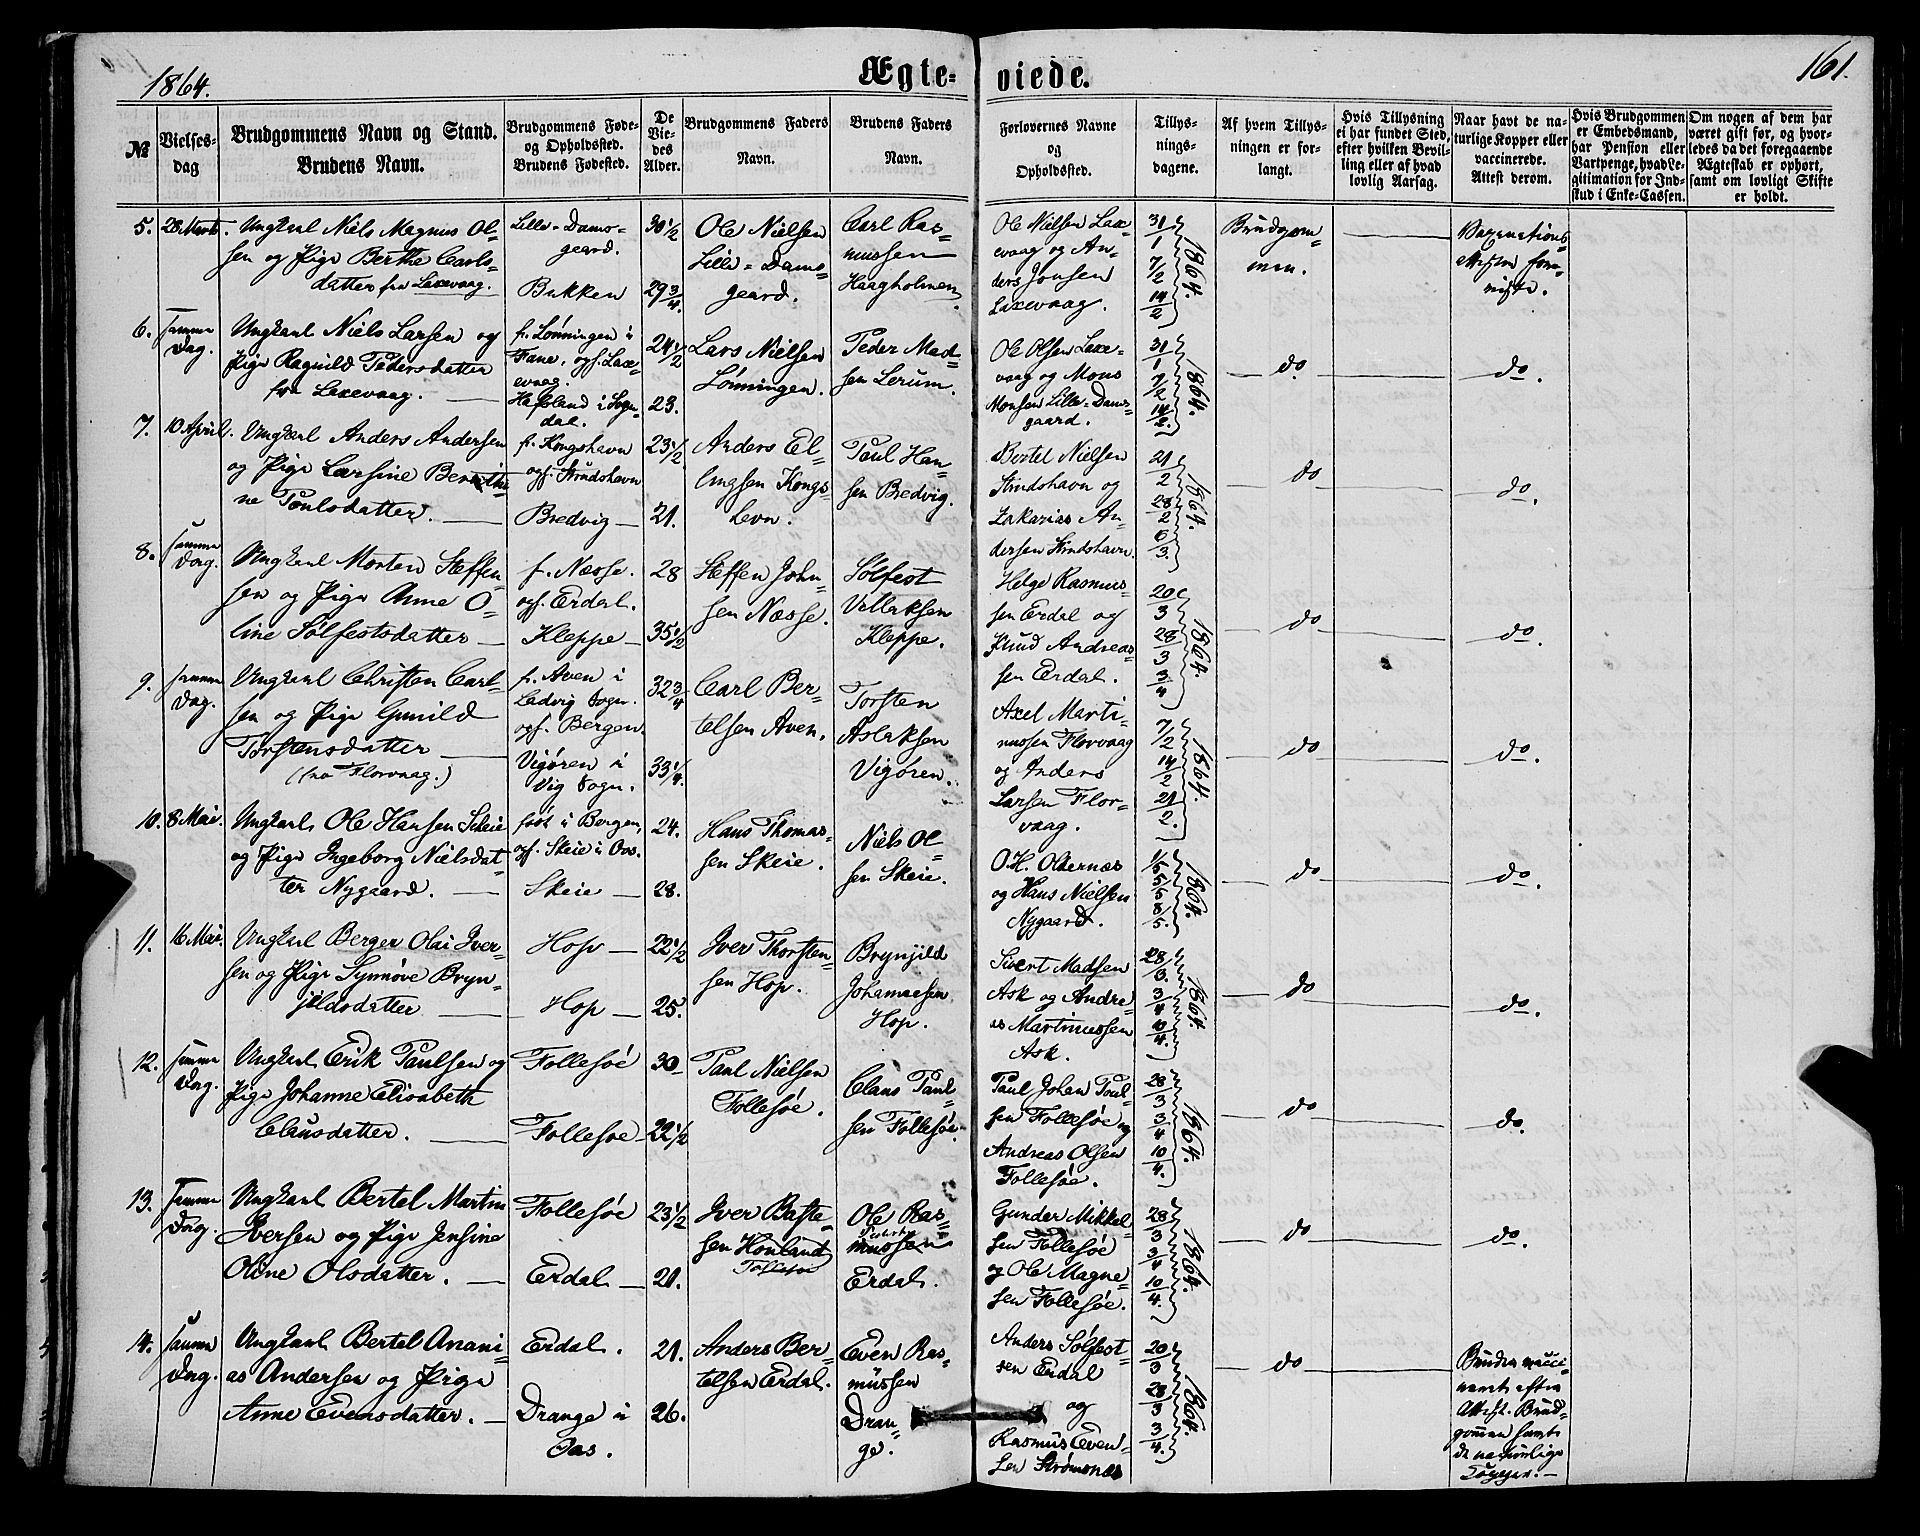 1864.
Ægte-
viede.
161.
№
Vielses-
dag
Brudgommens Navn og Stand.
Brudens Navn.
Brudgommens Føde-
og Opholdssted.
Brudens Fødested.
De
Vie-
des
Alder.
Brudgommens Faders
Navn.
Brudens Faders
Navn.
Forlovernes Navne
og
Opholdssted.
Tillys-
nings-
dagene.
Af hvem Tillys-
ningen er for-
langt.
Hvis Tillysning
ei har fundet Sted,
efter hvilken Bevil-
ling eller af hvad
lovlig Aarsag.
Naar havt de na-
turlige Kopper eller
vaccinerede.
Attest derom.
Hvis Brudgommen
er Embedsmand,
har Pension eller
Vartpenge, hvad Le-
gitimation for Ind-
skud i Enke-Cassen.
Om nogen af dem har
været gift før, og hvor-
ledes da det foregaaende
Ægteskab er ophørt,
samt om lovligt Skifte
er holdt.
5.
28 Marts.
Ungkarl Niels Magnus Ol-
sen og Pige Berthe Carls-
datter fra Laxevaag.
Lille-Dams-
gaard.
Bukken
30 1/2
29 3/4
Ole Nielsen
Lille-Dams-
gaard.
Carl Ras-
mussen
Haagholmen.
Ole Nielsen Lax-
evaag og An-
ders Jonsen
Laxevaag.
31/1
7/2
14/2
1864.
Brudgom-
men.
Vaxinations-
6.
samme
Dag.
Ungkarl Niels Larsen og
Pige Ragnild Pedersdatter
fra Laxevaag.
f. Lønningen i
Fane, opf. Laxe-
evaag.
Hafsland i Sogn-
dal.
24 1/2
23.
Lars Nielsen
Lønningen.
Peder Mad-
sen Lerum.
Ole Olsen Laxe-
vaag og Mons
Monsen Lille-Dams-
gaard.
31/1
7/2
14/2
1864.
do
do.
7.
10 April.
Ungkarl Anders Andersen
og Pige Larsine Berethi-
ne Poulsdatter.
f. Kongshavn
opf. Strudshavn
Bredvig
23 1/2
21.
Anders El-
lingsen Kongs-
Paul Han-
sen Bredvig.
Bertel Nielsen
Strudshavn og
Zakarias An-
dersen Strudshavn.
21/2
28/2
6/3.
1864.
do
do.
8.
samme
Dag.
Ungkarl Morten Steffen-
sen og Pige Anne O-
line Sølfestsdatter
f. Næsse.
opf. Erdal.
Kleppe
28
35 1/2
Steffen John-
sen Næsse.
Sølfest
Villiksen
Kleppe.
Helge Rasmus-
sen Erdal og
Knud Andreas-
sen Erdal.
20/3
28/3
3/4
1864.
do
do.
9.
samme
Dag.
Ungkarl Christen Carl-
sen og Pige Gunild
Torstensdatter
(fra Florvaag.)
f. Aven i
Ladvig Sogn.
opf. Bergen.
Vigøren i
Vig Sogn.
32 3/4
33 1/4.
Carl Ber-
telsen Aven.
Torsten
Aslaksen
Vigøren.
Axel Marti-
nussen Florvaag
og Anders
Larsen Flor-
vaag.
7/2
14/2
21/2.
1864.
do
do.
10.
8 Mai.
Ungkarl Ole Hansen Skeie
og Pige Ingeborg Nielsdat-
ter Nygaard.
født i Bergen,
opf. Skeie i Oos.
Skeie
24.
28.
Hans Thomas-
sen Skeie.
Niels Ol-
sen Skeie.
O. H. Oldernæs
og Hans Nielsen
Nygaard.
1/5
5/5
8/5.
1864.
do
do.
11.
16 Mai.
Ungkarl Berger Olai Iver-
sen og Pige Synnøve Bryn-
jildsdatter
Hop
Hop
22 1/2
25.
Iver Thorsten-
sen Hop.
Brynjild
Johannesen
Hop.
Sivert Madsen
Ask og Andre-
as Martinussen
Ask.
28/3.
3/4
10/4.
1864.
do
do.
12.
samme
Dag.
Ungkarl Erik Paulsen og
Pige Johanne Elisabeth
Clausdatter.
Follesøe
Follesøe
30
22 1/2
Paul Nielsen
Follesøe.
Claus Paul-
sen Follesøe.
Paul Johan Poul-
sen Follesøe og
Andreas Olsen
Follesøe.
28/3
3/4
10/4.
1864.
do
do.
13.
samme
Dag.
Ungkarl Bertel Martin
Iversen og Pige Jensine
Oline Olsdatter.
Follesøe
Erdal
23 1/2
21.
Iver Baste-
sen Honland
Follesøe
Ole Ras-
mussen
Erdal.
Gunder Mikkel-
sen Follesøe
og Ole Magne-
sen Follesøe.
28/3
3/4
10/4.
1864.
do
do.
14.
samme
Dag.
Ungkarl Bertel Anani-
as Andersen og Pige
Anne Evensdatter.
Erdal.
Drange i
Oos.
21.
26.
Anders Ber-
telsen Erdal.
Even Ras-
mussen
Dran-
ge.
Anders Sølfest-
sen Erdal
og
Rasmus Even-
sen Strømsnæs
20/3
28/3
3/4.
1864.
do
Bruden vacci-
neret efter
Attest. Brud-
gommen havt
de naturlige
Kopper.